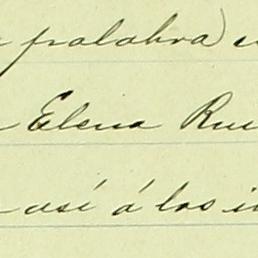 palabra
Elena
así á los